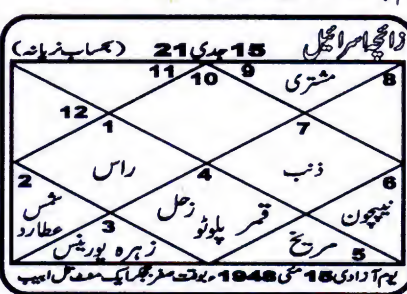 زائچہ اسرائیل 15 جدی 21 (بحساب نریانہ)
11 10 9 مشتری 8
12 1 7
راس 4 ذنب
2 6
شمس عطارد 3 زحل پلوٹو قمر نیپچون
زہرہ یورینس مریخ 5
یوم آزادی 15 مئی 1948ء بوقت صفر بجکر ایک منٹ تل ابیب